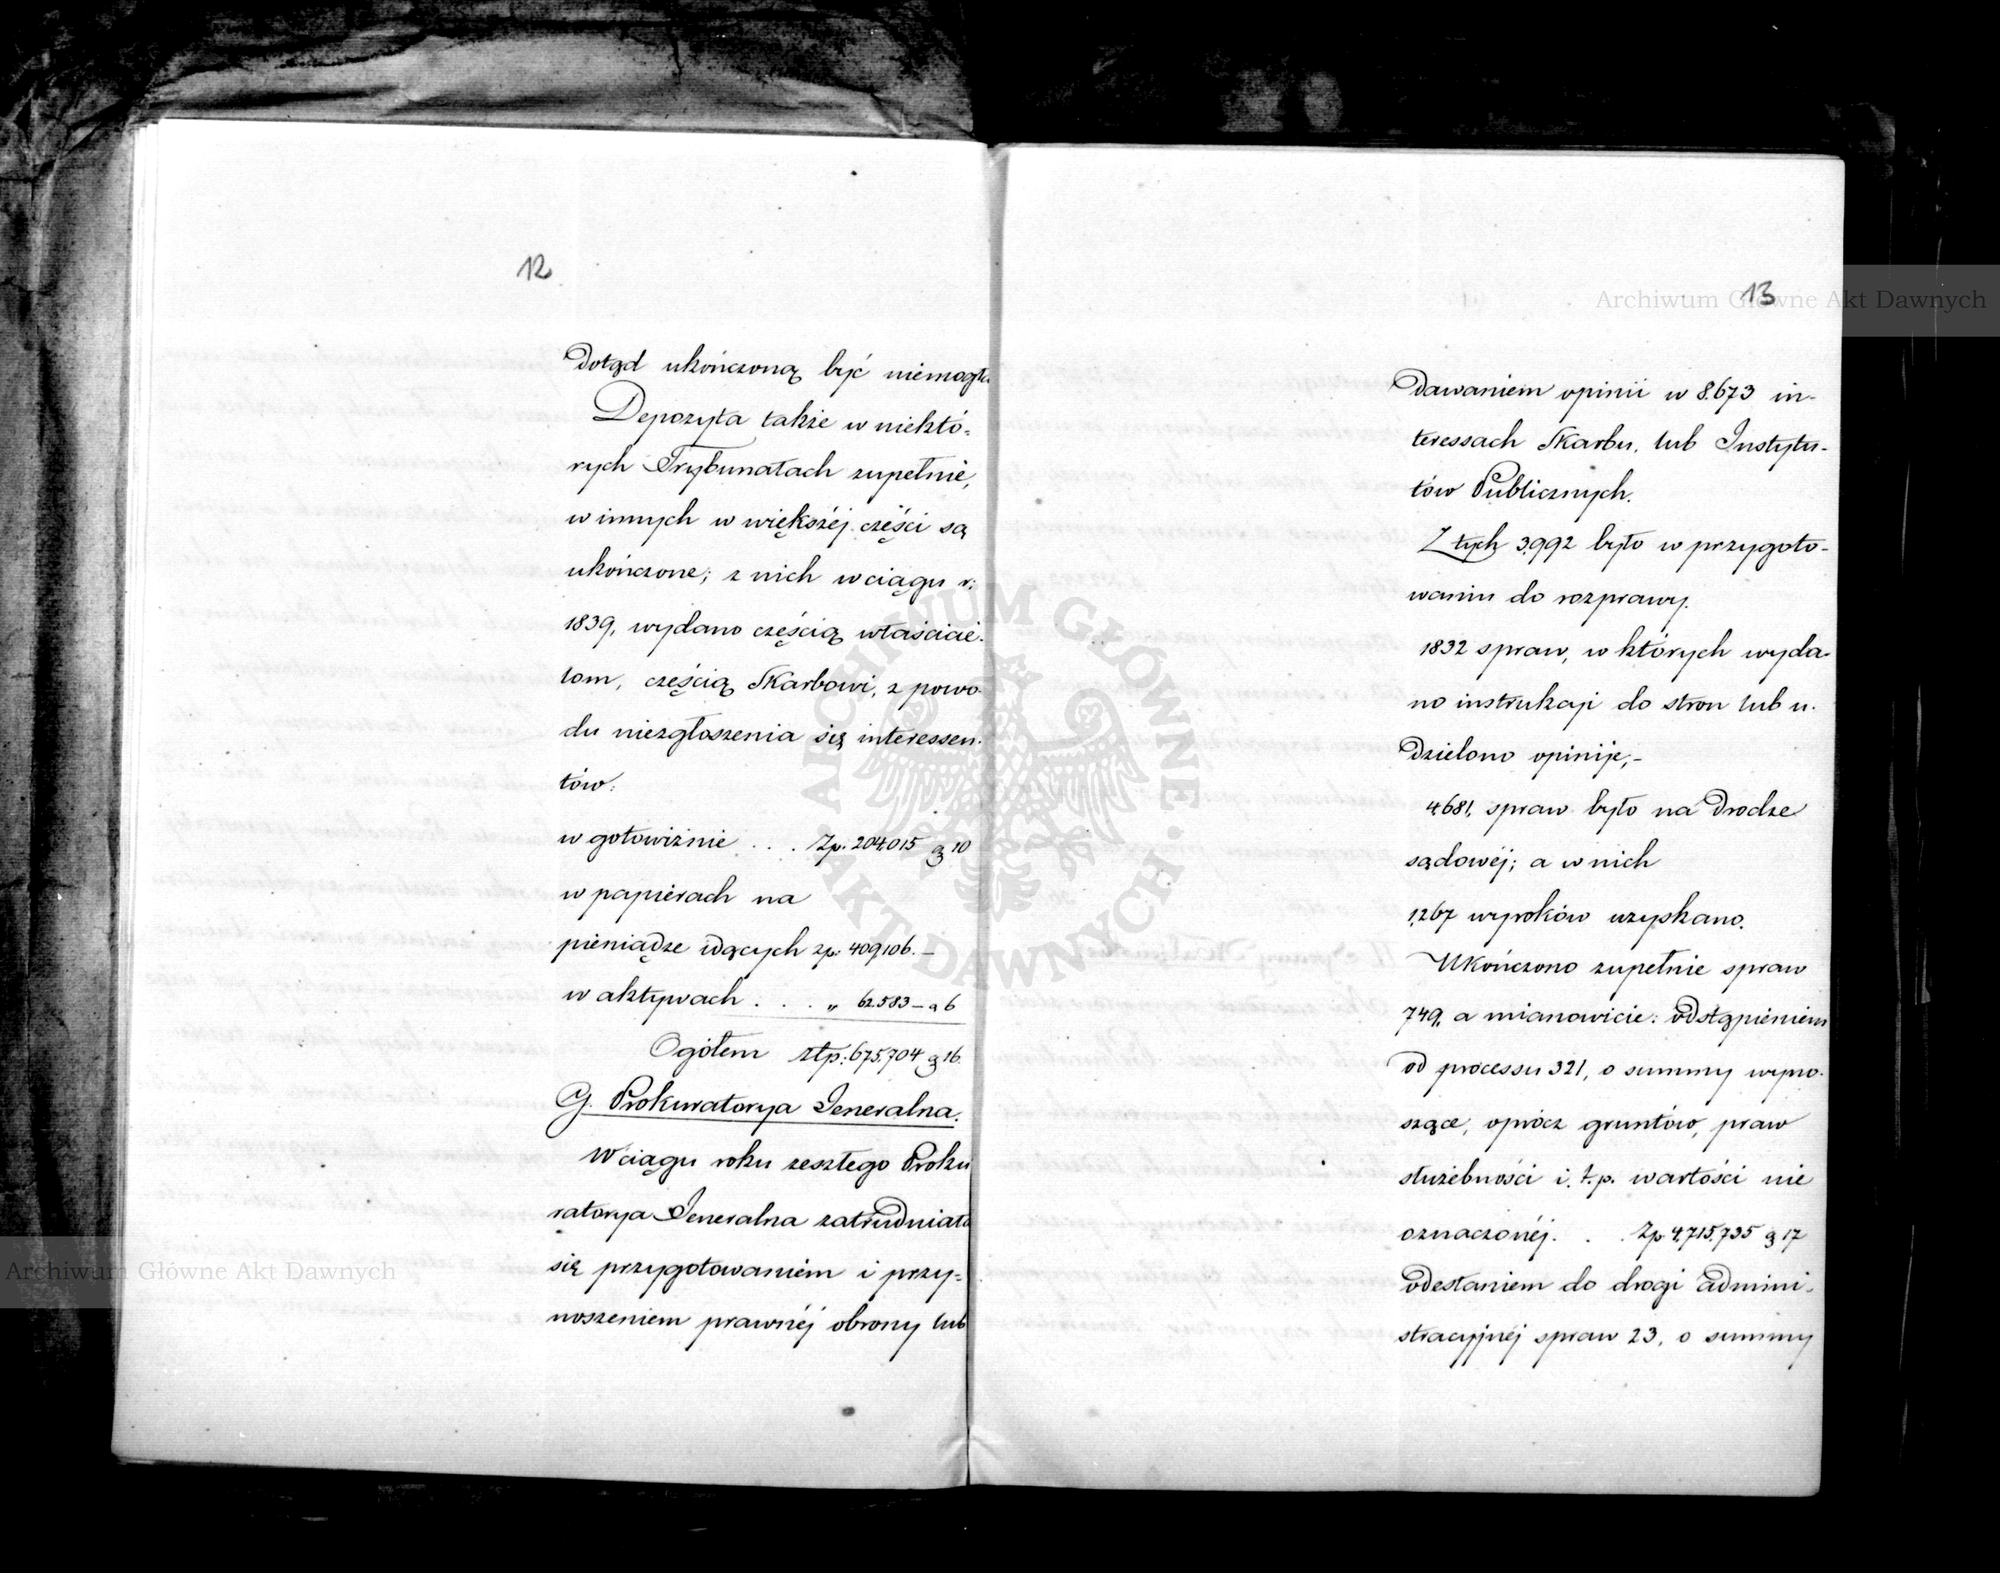 12
Dotąd ukończoną być niemogła
Depozyta także w niektó=
rych Trybunałach zupełnie,
w innych w większéj części są
ukończone; z nich w ciągu r:
1839, wydano częścią właścicie-
lom, częścią Skarbowi, z powo-
du niezgłoszenia się interessen-
tów:
w gotowiźnie . . . Zp. 204,015 g 10
w papierach na
pieniądze idących zp: 409,106. —
w aktywach . . . „ 62.583 — g 6
Ogółem złp: 675,704 g 16.
G. Prokuratorya Jeneralna.
W ciągu roku zeszłego Proku
ratorya Jeneralna zatrudniała
się przygotowaniem i przy=
noszeniem prawnéj obrony lub
13
Dawaniem opinii w 8.673 in-
teressach Skarbu, lub Instytu-
tów Publicznych.
Z tych 3,992 było w przygoto-
waniu do rozprawy.
1832 spraw, w których wyda-
no instrukcji do stron lub u-
dzielono opinije; -
4,681, spraw było na drodze
sądowéj; a w nich
1,267 wyroków uzyskano.
Ukończono zupełnie spraw
749, a mianowicie: odstąpieniem
od processu 321, o summy wyno-
szące, oprócz gruntów, praw
służebności i. t. p. wartości nie
oznaczonéj. . . Zp. 4,715,735 g 17
odesłaniem do drogi admini-
stracyjnéj spraw 23, o summy
Archiwum Główne Akt Dawnych
Archiwum Główne Akt Dawnych
ARCHIWUM GŁÓWNE · AKT DAWNYCH ·